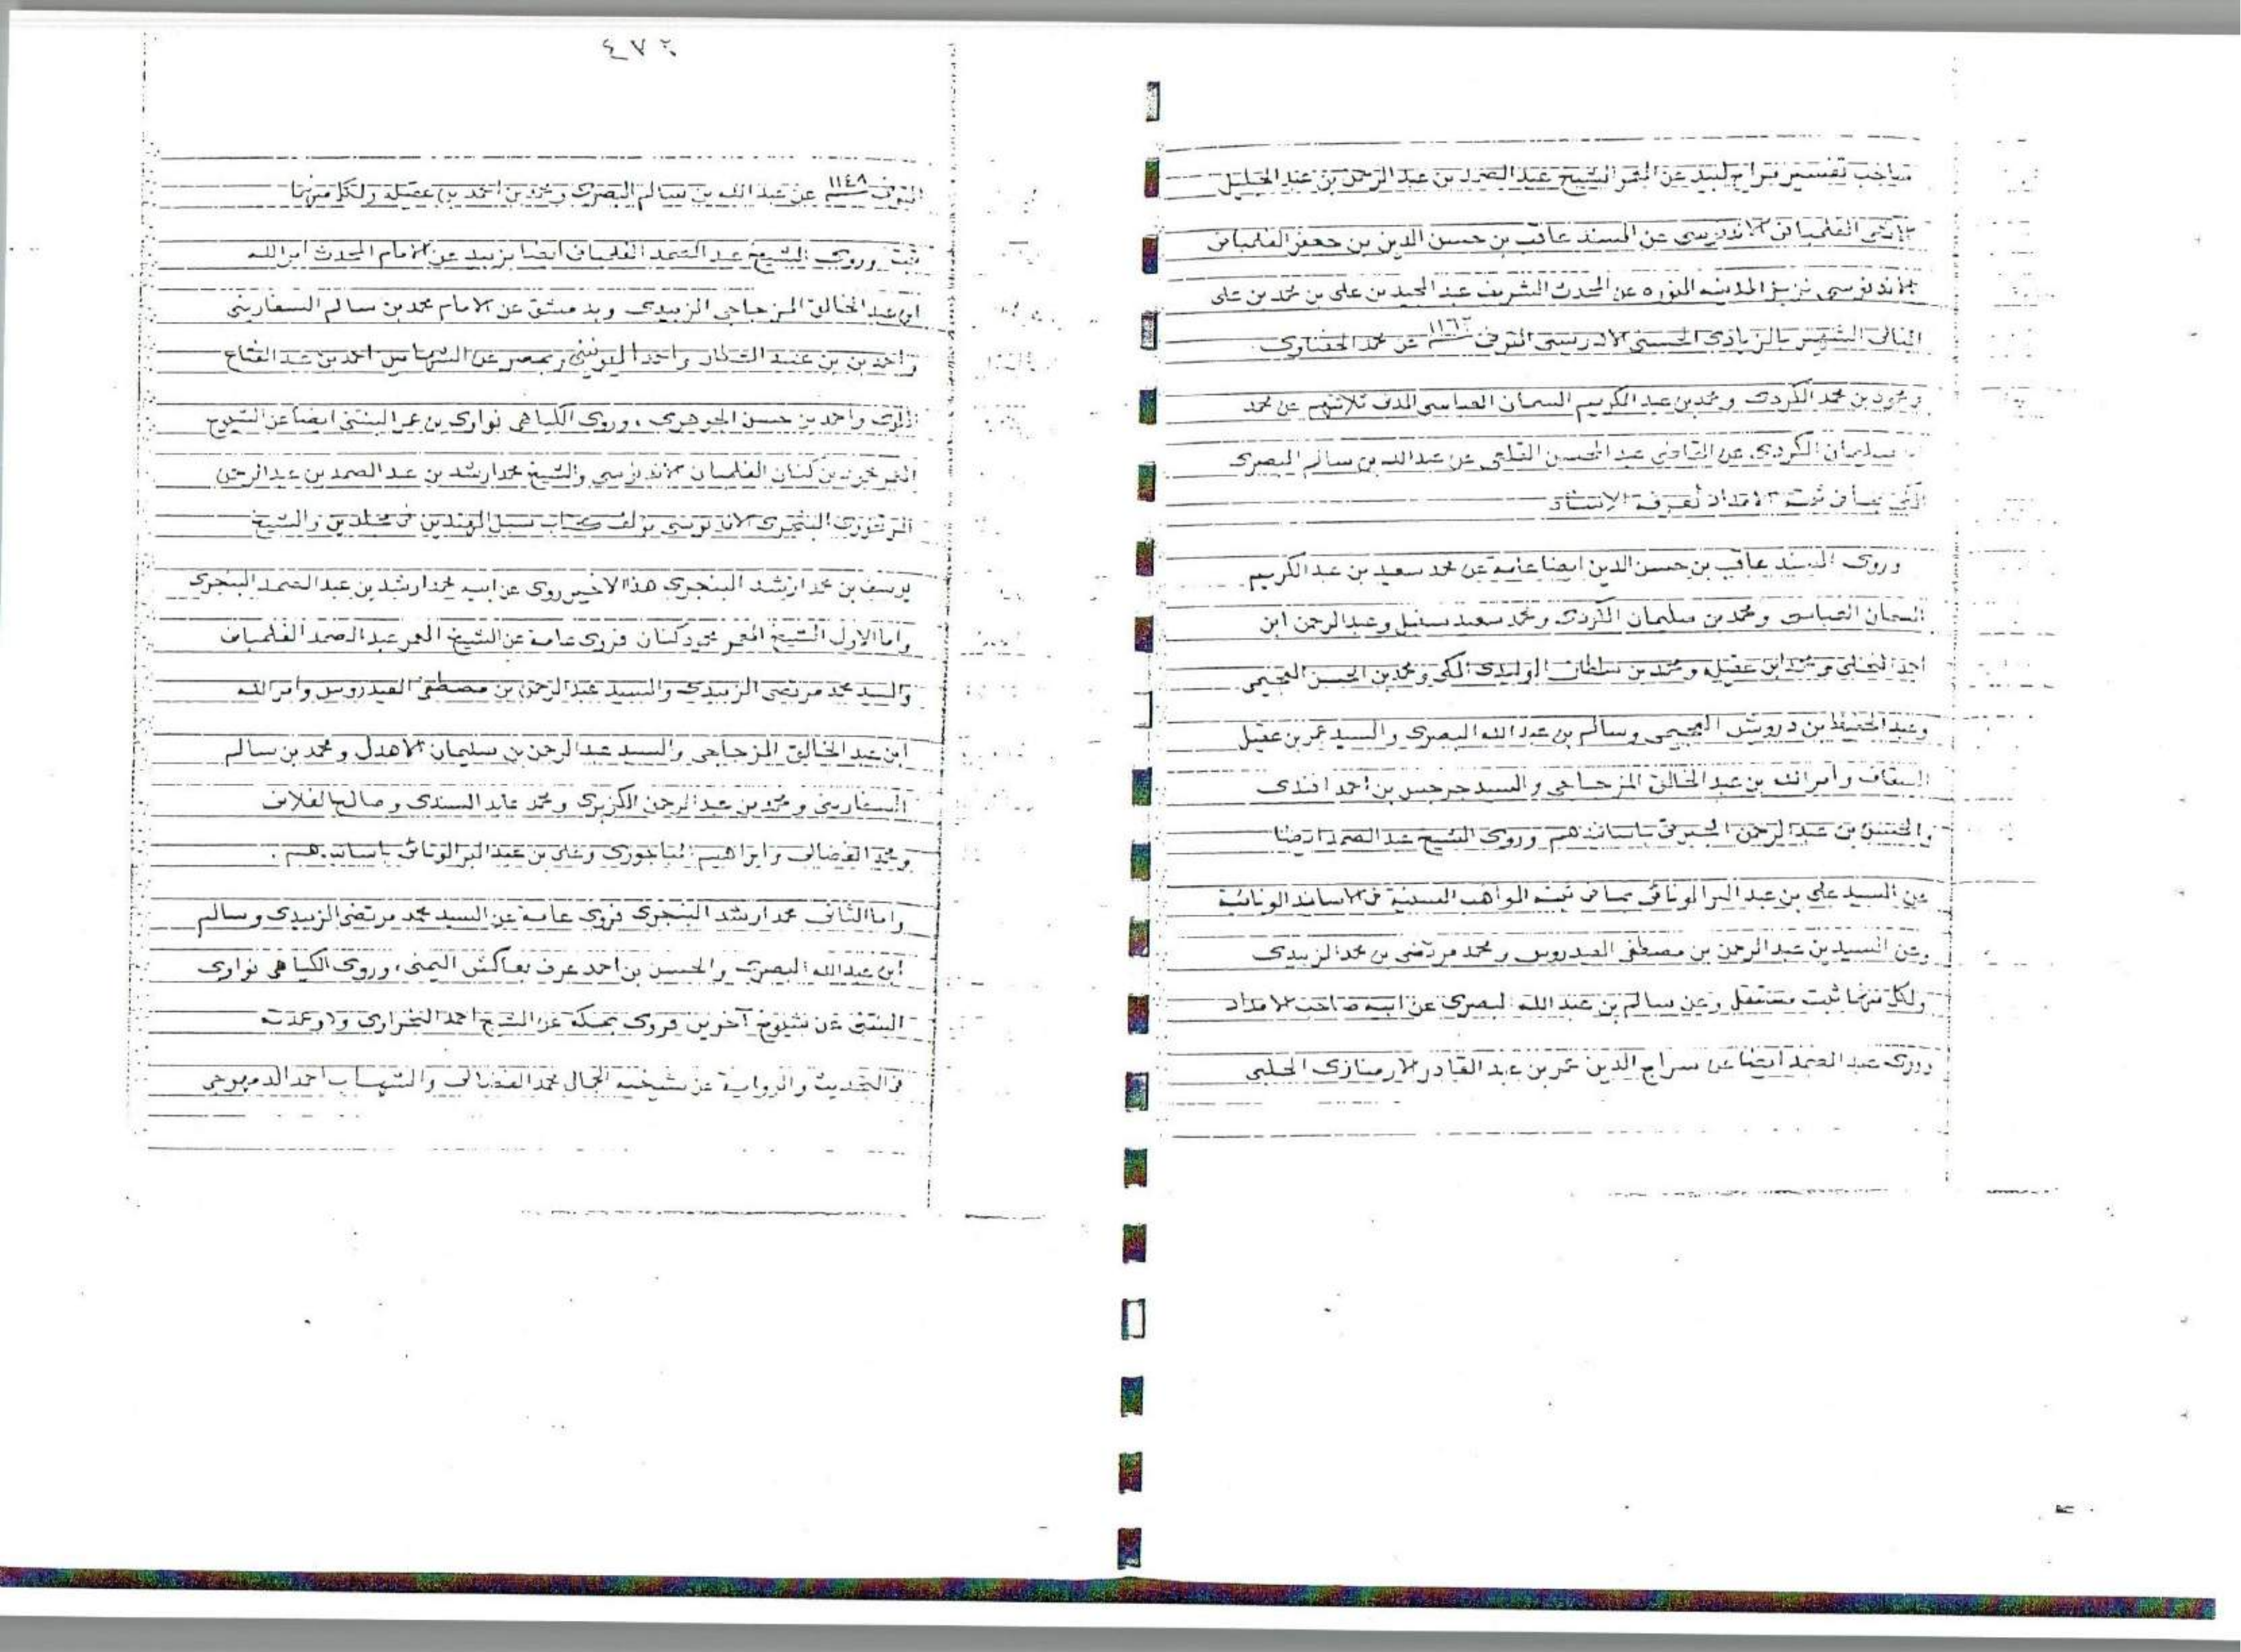 صاحب تفسير مراح لبيد عن المعمر الشيخ عبد الصمد بن عبد الرحمن بن عبد الجليل
الفلمباني الاندونيسي عن المسند عاقب بن حسن الدين بن جعفر الفلمباني
الاندونيسي نزيل المدينه المنوره عن المحدث الشريف عبد المجيد بن علي بن محمد بن علي
المنالى الشهير بالزبادى الحسنى الادريسى المتوفى ١١٦٣ عن محمد الحفناوى
ومحمود بن محمد الكردى ومحمد بن عبد الكريم السمان العباسى المدنى ثلاثتهم عن محمد
سليمان الكردى عن القاضى عبد المحسن القلعى عن عبدالله بن سالم البصرى
المكى بما فى ثبت الامداد لمعرفة الاسناد
وروى المسند عاقب بن حسن الدين ايضا عامة عن محمد سعيد بن عبد الكريم
السمان العباسى ومحمد بن سليمان الكردى ومحمد سعيد سنبل وعبد الرحمن ابن
احمد النخلى ومحمد ابن عقيله ومحمد بن سلطان الوليدى المكى ومحمد بن الحسن العجيمى
وعبد الحفيظ بن درويش العجيمى وسالم بن عبد الله البصرى والسيد عمر بن عقيل
السقاف وأمر الله بن عبد الخالق المزجاجى والسيد جرجيس بن احمد افندى
والحسن بن عبد الرحمن الجبرتى باسانيدهم وروى الشيخ عبد الصمد ايضا
عن السيد على بن عبد البر الونائى بما فى ثبته المواهب السنية فى الاسانيد الونائية
وعن السيد بن عبد الرحمن بن مصطفى العيدروس ومحمد مرتضى بن محمد الزبيدى
ولكل منهما ثبت مستقل وعن سالم بن عبد الله البصرى عن ابيه صاحب الامداد
وروى عبد الصمد ايضا عن سراج الدين عمر بن عبد القادر الارمنازى الحلبى
٤٧٤
المتوفى ١١٤٨ عن عبد الله بن سالم البصرى ومحمد بن احمد بن عقيلة ولكل منهما
ثبت وروى الشيخ عبد الصمد الفلمبانى ايضا بزبيد عن الامام المحدث أمر الله
ابن عبد الخالق المزجاجى الزبيدى وبدمشق عن الامام محمد بن سالم السفارينى
واحمد بن عبيد العطار واحمد وبمصر عن الشهاب احمد بن عبد الفتاح
الملوى واحمد بن حسن الجوهرى، وروى الكياهى نواوى بن عمر البنتنى ايضا عن الشيوخ
المعمر محمود بن كنان الفلمبانى الاندونيسي والشيخ محمد ارشد بن عبد الصمد بن عبد الرحمن
البنجرى الاندونيسى مؤلف كتاب سبيل المهتدين فى مجلدين والشيخ
يوسف بن محمد ارشد البنجرى هذا الاخير روى عن ابيه محمد ارشد بن عبد الصمد البنجرى
واما الاول الشيخ المعمر محمود كنان فروى عامة عن الشيخ المعمر عبد الصمد الفلمبانى
والسيد محمد مرتضى الزبيدى والسيد عبد الرحمن بن مصطفى العيدروس وأمر الله
ابن عبد الخالق المزجاجى والسيد عبد الرحمن بن سليمان الاهدل ومحمد بن سالم
السفارينى ومحمد بن عبد الرحمن الكزبرى ومحمد عابد السندى وصالح الفلانى
ومحمد الفضالى وابراهيم الباجورى وعلى بن عبد البر الونائى باسانيدهم.
واما الثانى محمد ارشد البنجرى فروى عامة عن السيد محمد مرتضى الزبيدى وسالم
ابن عبدالله البصرى والحسن بن احمد عرف بعاكش اليمنى، وروى الكياهى نواوى
البنتنى عن شيوخ آخرين فروى بمكة عن الشيخ احمد النحراوى وعمدته
فى التحديث والرواية عن شيخيه الجمال محمد الفضالى والشهاب احمد الدمهوجى